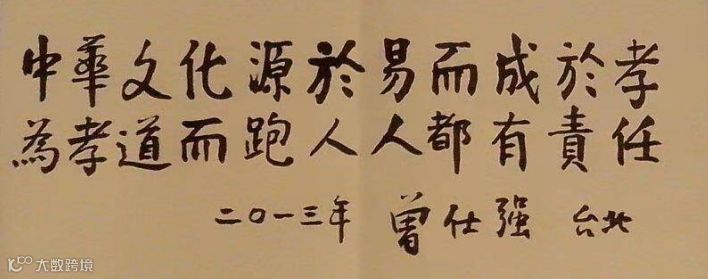 中華文化源於易而成於孝
為孝道而跑人人都有責任
二〇一三年 曾仕强 台北
大数跨境